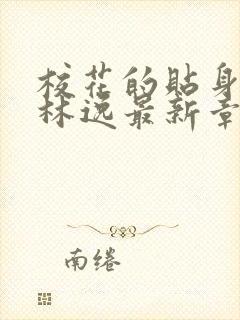 校花的贴身
林逸最新章
南绻